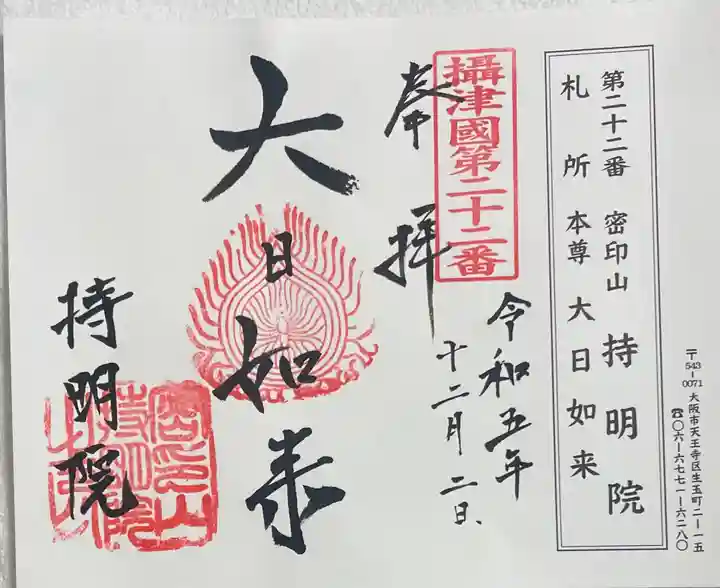 〒543-0071 大阪市天王寺区生玉町二-一五
☎〇六-六七七一-六二八〇
第二十二番 密印山 持明院
札所本尊 大日如来
攝津國第二十二番
奉拝
令和五年
十二月二日
大日如来
持明院
密印山
持明院